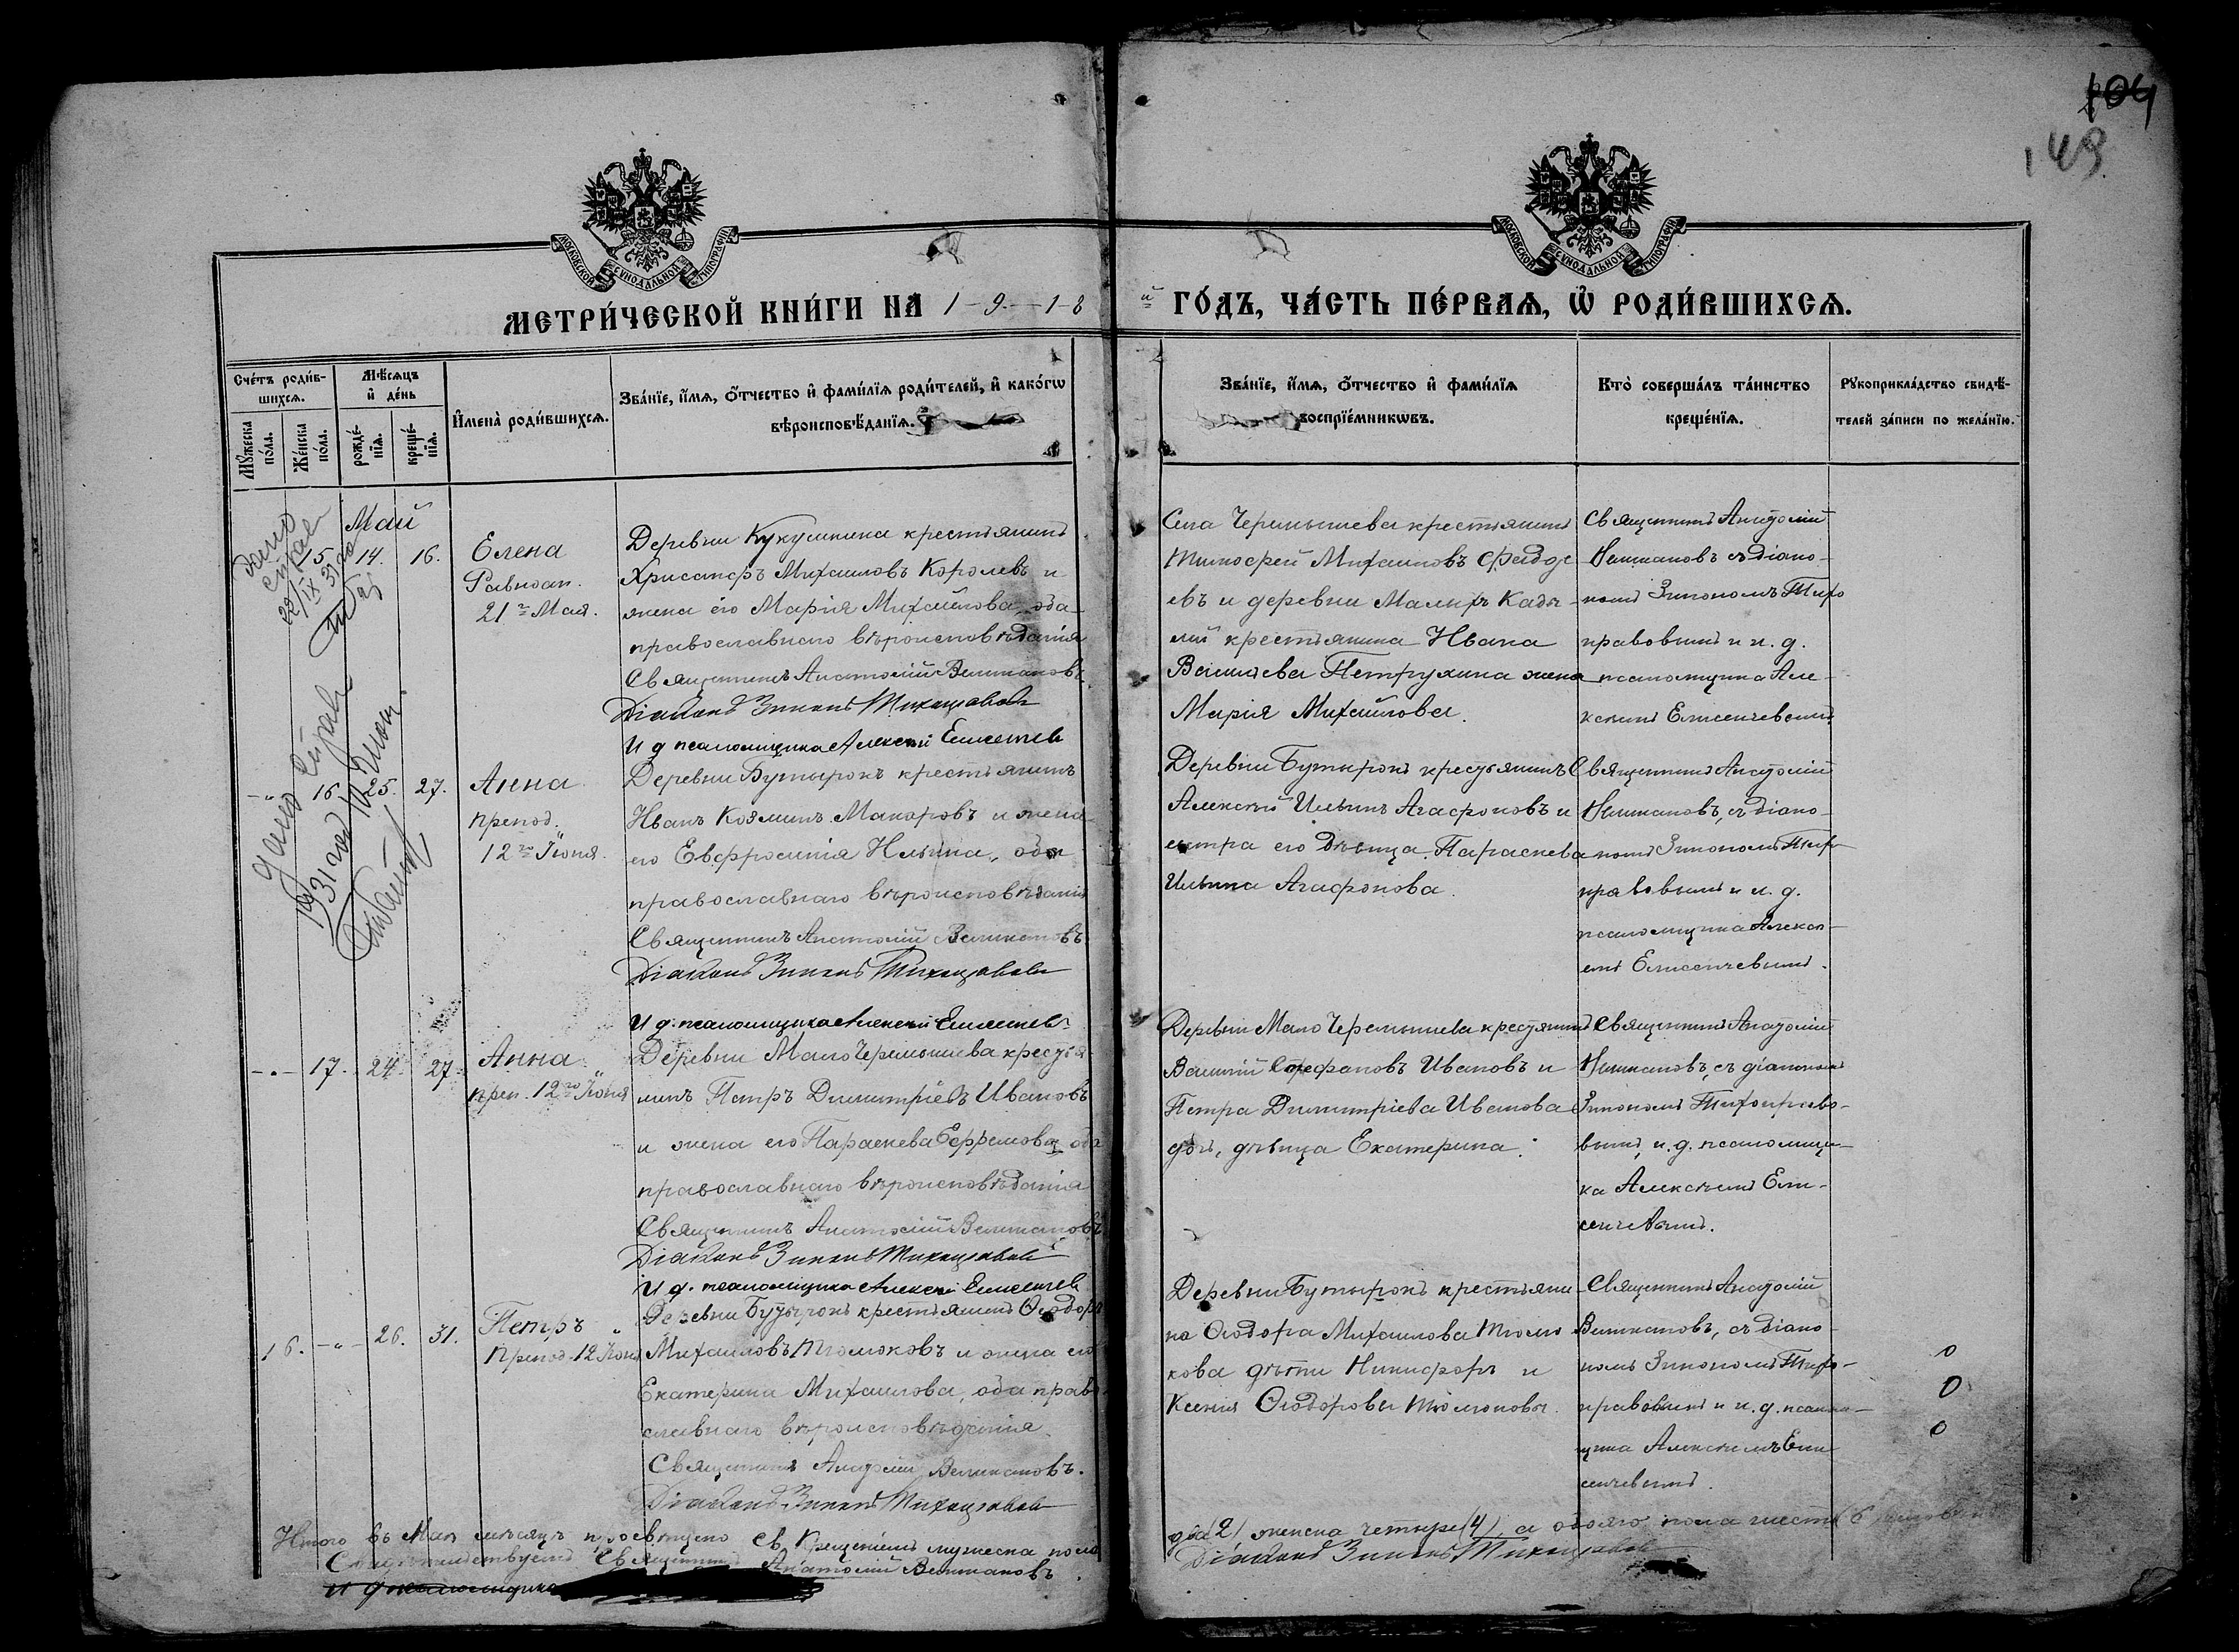 104
149
МОСКОВСКОЙ СѴНОДАЛЬНОЙ ТИПОГРАФІИ
МОСКОВСКОЙ СѴНОДАЛЬНОЙ ТИПОГРАФІИ
МЕТРИ́ЧЕСКОЙ КНИ́ГИ НА 1-9-1-8
й ГО́ДЪ, ЧА́СТЬ ПЕ́РВАѦ, Ѽ РОДИ́ВШИХСѦ.
Сче́тъ роди́в-
шихсѧ.
Мꙋ́жеска
по́ла.
Же́нска
по́ла.
Мѣ́сѧцъ
и҆ де́нь
рожде́-
нїѧ.
креще́-
нїѧ.
И҆мена̀ роди́вшихсѧ.
Зва́нїе, и҆́мѧ, ѻ҆́тчество и҆ фами́лїѧ роди́телей, и҆ како́гѡ
вѣроисповѣ́данїѧ.
Зва́нїе, и҆́мѧ, ѻ҆́тчество и҆ фами́лїѧ
воспрїе́мникѡвъ.
Кто̀ соверша́лъ та́инство
креще́нїѧ.
Рꙋкоприкла́дство свидѣ́-
телей за́писи по жела́нїю.
Май
15 14. 16.
Елена
Равноап.
21го Мая.
Деревни Кукушкина крестьянинъ
Христофръ Михаиловъ Королевъ и
жена его Марія Михайлова, оба
православнаго вѣроисповѣданія
Священникъ Анатолій Великановъ.
Діаконъ Зинонъ Тихонравовъ
И д псаломщика Алексѣй Елисеичев
Села Черемышева крестьянинъ
Тимофей Михаиловъ Федоре
евъ и деревни Малыхъ Кады-
лей крестьянина Ивана
Васильева Петрухина жена
Марія Михайлова.
Священникъ Анатолій
Великановъ съ діако-
номъ Зинономъ Тихо
нравовымъ и и. д.
псаломщика Але-
ксѣемъ Елисеичевымъ.
Дано справ
22/IX 31го
Дано справ
1931 год 10 Июня.
-"- 16. 25. 27.
Анна
препод.
12го Іюня.
Деревни Бутырокъ крестьянинъ
Иванъ Козминъ Макаровъ и жена
его Евфросинія Ильина, оба
православнаго вѣроисповѣданія
Священникъ Анатолій Великановъ
Діаконъ Зинонъ Тихонравовъ
И д. псаломщика Алексѣй Елисеичев.
Деревни Бутырокъ крестьянинъ
Алексѣй Ильинъ Агафоновъ и
сестра его дѣвица Параскева
Ильина Агафонова.
Священникъ Анатолій
Великановъ, съ діако-
номъ Зинономъ Тихо-
нравовымъ и и. д.
псаломщика Алексѣ-
емъ Елисеичевымъ.
-"- 17. 24. 27.
Анна
преп. 12го Іюня
Деревни Мало Черемышева крестья-
нинъ Петръ Димитріевъ Ивановъ
и жена его Параскева Ефремова, оба
православнаго вѣроисповѣданія
Священникъ Анатолій Великановъ
Діаконъ Зинонъ Тихонравовъ
И д. псаломщика Алексѣй Елисеичев
Деревни Мало Черемышева крестьянинъ
Василій Стефановъ Ивановъ и
Петра Димитріева Иванова
дочь, дѣвица Екатерина.
Священникъ Анатолій
Великановъ, съ діакономъ
Зинономъ Тихонраво-
вымъ, и. д. псаломщи-
ка Алексѣемъ Ели-
сеичевымъ.
16. -"- 26. 31.
Петръ
Препод. 12 Іюня
Деревни Бутырокъ крестьянинъ Ѳеодоръ
Михаиловъ Тюлюковъ и жена его
Екатерина Михаилова, оба право-
славнаго вѣроисповѣданія.
Священникъ Анатолій Великановъ.
Діаконъ Зинонъ Тихонравовъ
Деревни Бутырокъ крестьяни-
на Ѳеодора Михаилова Тюлю
кова дѣти Никифоръ и
Ксенія Ѳеодоровы Тюлюковы.
Священникъ Анатолій
Великановъ, съ діако-
номъ Зинономъ Тихо-
нравовымъ и и. д. псалом-
щика Алексѣемъ Ели-
сеичевымъ.
Итого въ Маѣ мѣсяцѣ просвѣщено св. Крещеніемъ мужеска пола
два (2) женска четыре (4), а обоего пола шесть (6) человѣкъ
Свидѣтельствуетъ Священникъ Анатолій Великановъ.
Діаконъ Зинонъ Тихонравовъ
И д псаломщика